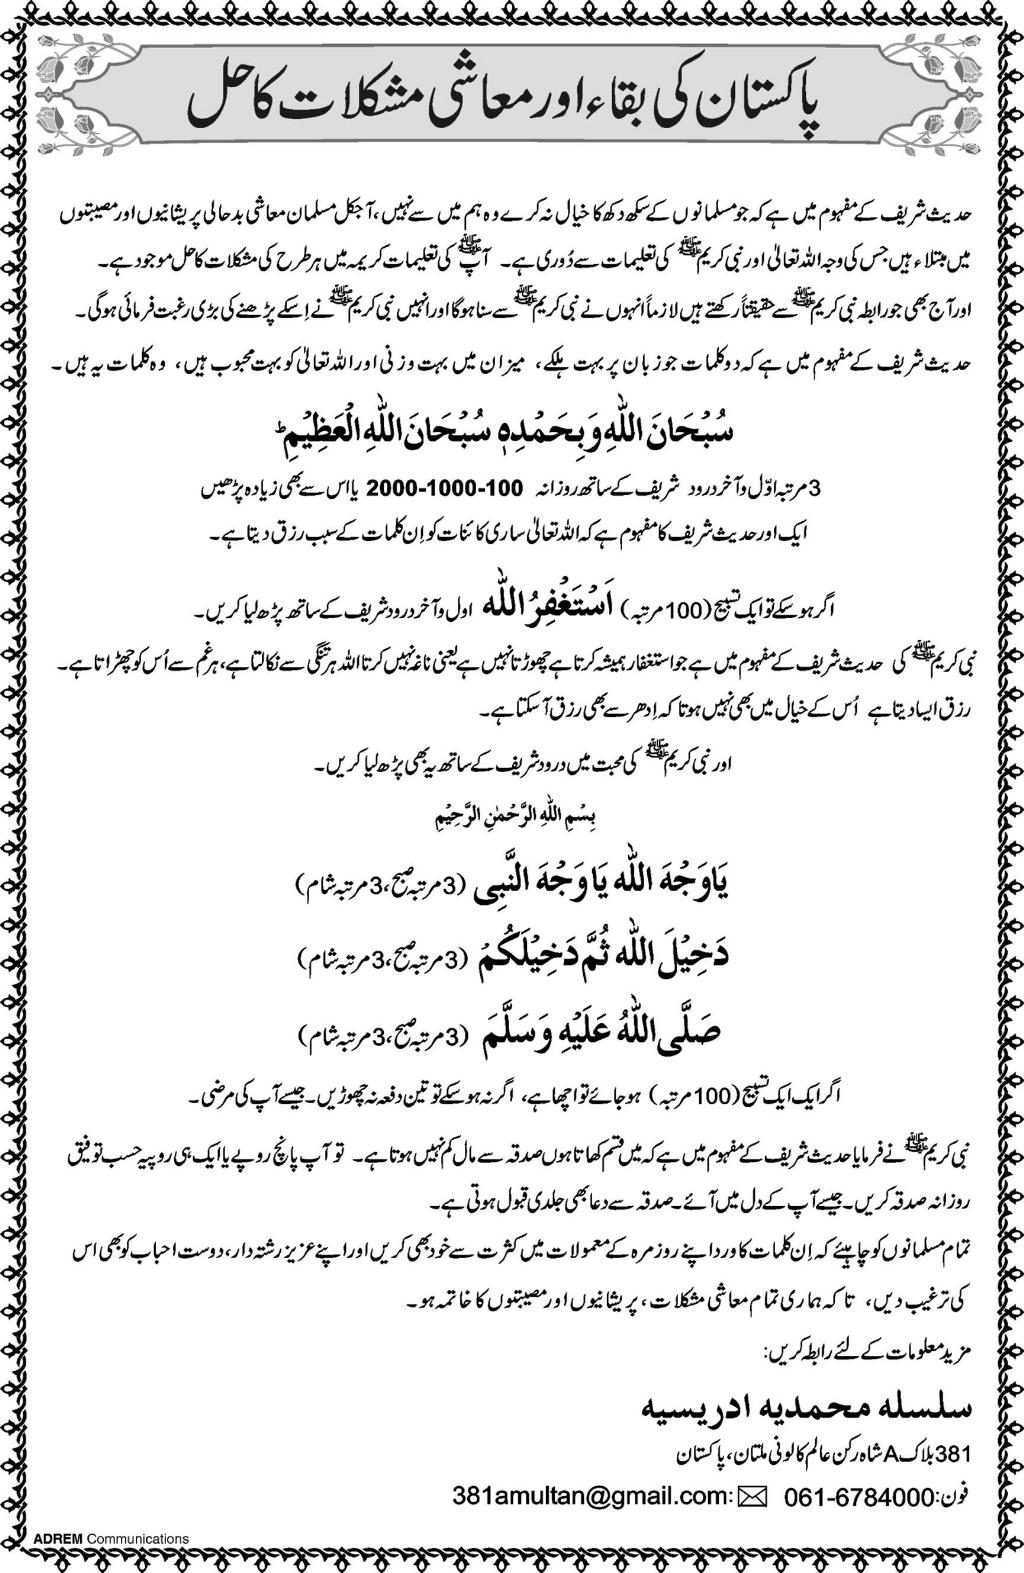 پاکستان کی بقاء اور معاشی مشکلات کا حل
حدیث شریف کے مفہوم میں ہے کہ جو مسلمانوں کے سکھ دکھ کا خیال نہ کرے وہ ہم میں سے نہیں، آجکل مسلمان معاشی بدحالی پریشانیوں اور مصیبتوں
میں مبتلاء ہیں جس کی وجہ اللہ تعالیٰ اور نبی کریم ﷺ کی تعلیمات سے دُوری ہے۔ آپ ﷺ کی تعلیمات کریمہ میں ہر طرح کی مشکلات کا حل موجود ہے۔
اور آج بھی جو رابطہ نبی کریم ﷺ سے حقیقتاً رکھتے ہیں لازماً انہوں نے نبی کریم ﷺ سے سنا ہوگا اور انہیں نبی کریم ﷺ نے اسکے پڑھنے کی بڑی رغبت فرمائی ہوگی۔
حدیث شریف کے مفہوم میں ہے کہ دو کلمات جو زبان پر بہت ہلکے، میزان میں بہت وزنی اور اللہ تعالیٰ کو بہت محبوب ہیں، وہ کلمات یہ ہیں۔
سُبْحَانَ اللّٰهِ وَبِحَمْدِهٖ سُبْحَانَ اللّٰهِ الْعَظِيْمِ ؕ
3 مرتبہ اوّل و آخر درود شریف کے ساتھ روزانہ 100-1000-2000 یا اس سے بھی زیادہ پڑھیں
ایک اور حدیث شریف کا مفہوم ہے کہ اللہ تعالیٰ ساری کائنات کو اِن کلمات کے سبب رزق دیتا ہے۔
اگر ہو سکے تو ایک تسبیح (100 مرتبہ) اَسْتَغْفِرُ اللّٰه اول و آخر درود شریف کے ساتھ پڑھ لیا کریں۔
نبی کریم ﷺ کی حدیث شریف کے مفہوم میں ہے جو استغفار ہمیشہ کرتا ہے چھوڑتا نہیں ہے یعنی ناغہ نہیں کرتا اللہ ہر تنگی سے نکالتا ہے، ہر غم سے اُس کو چھڑاتا ہے۔
رزق ایسا دیتا ہے اُس کے خیال میں بھی نہیں ہوتا کہ اِدھر سے بھی رزق آ سکتا ہے۔
اور نبی کریم ﷺ کی محبت میں درود شریف کے ساتھ یہ بھی پڑھ لیا کریں۔
بِسْمِ اللّٰهِ الرَّحْمٰنِ الرَّحِيْمِ
يَا وَجْهَ اللّٰه يَا وَجْهَ النَّبِى (3 مرتبہ صبح، 3 مرتبہ شام)
دَخِيْلَ اللّٰه ثُمَّ دَخِيْلَكُمْ (3 مرتبہ صبح، 3 مرتبہ شام)
صَلَّى اللّٰهُ عَلَيْهِ وَسَلَّمَ (3 مرتبہ صبح، 3 مرتبہ شام)
اگر ایک ایک تسبیح (100 مرتبہ) ہو جائے تو اچھا ہے، اگر نہ ہو سکے تو تین دفعہ نہ چھوڑیں۔ جیسے آپ کی مرضی۔
نبی کریم ﷺ نے فرمایا حدیث شریف کے مفہوم میں ہے کہ میں قسم کھاتا ہوں صدقہ سے مال کم نہیں ہوتا ہے۔ تو آپ پانچ روپے یا ایک ہی روپیہ حسب توفیق
روزانہ صدقہ کریں۔ جیسے آپ کے دل میں آئے۔ صدقہ سے دعا بھی جلدی قبول ہوتی ہے۔
تمام مسلمانوں کو چاہیئے کہ اِن کلمات کا ورد اپنے روزمرہ کے معمولات میں کثرت سے خود بھی کریں اور اپنے عزیز رشتہ دار، دوست احباب کو بھی اس
کی ترغیب دیں، تاکہ ہماری تمام معاشی مشکلات، پریشانیوں اور مصیبتوں کا خاتمہ ہو۔
مزید معلومات کے لئے رابطہ کریں:
سلسلہ محمدیہ ادریسیہ
381 بلاک A شاہ رکن عالم کالونی ملتان، پاکستان
فون: 061-6784000 ✉:381amultan@gmail.com
ADREM Communications